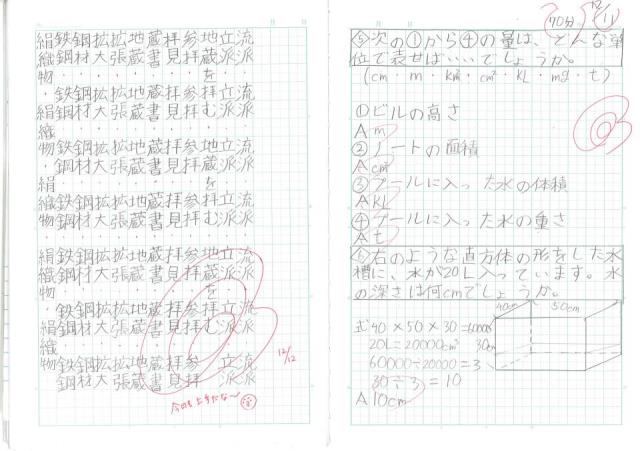 流派・流派・流派・流派・流派・流派・流派
立派・立派・立派・立派・立派・立派・立派
地蔵を拝む・地蔵を拝む・地蔵を拝む
参拝・参拝・参拝・参拝・参拝・参拝・参拝
拝見・拝見・拝見・拝見・拝見・拝見・拝見
蔵書・蔵書・蔵書・蔵書・蔵書・蔵書・蔵書
地蔵・地蔵・地蔵・地蔵・地蔵・地蔵・地蔵
拡張・拡張・拡張・拡張・拡張・拡張・拡張
拡大・拡大・拡大・拡大・拡大・拡大・拡大
鋼材・鋼材・鋼材・鋼材・鋼材・鋼材・鋼材
鉄鋼・鉄鋼・鉄鋼・鉄鋼・鉄鋼・鉄鋼・鉄鋼
絹織物・絹織物・絹織物・絹織物・絹織物
12/12
70分
12/11
⑤次の①から④の量は、どんな単
位で表せばいいでしょうか。
(cm・m・km²・cm²・KL・mg・t)
①ビルの高さ
A m
②ノートの面積
A cm²
③プールに入った水の体積
A KL
④プールに入った水の重さ
A t
⑥右のような直方体の形をした水
槽に、水が20L入っています。水
の深さは何cmでしょうか。
40cm
50cm
30cm
式40×50×30=60000
20L=20000cm³
60000÷20000=3
30÷3=10
A 10cm